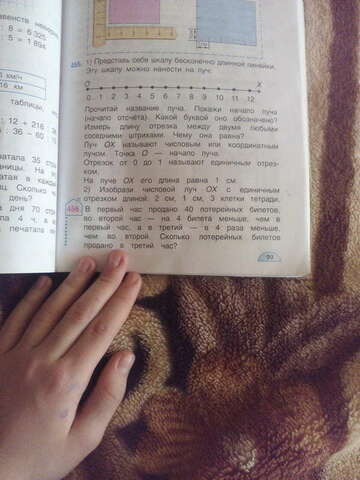 венств неверн
: 8 = 6 325
: 5 = 1 894
1 км/ч
16 км
таблицы,
12 + 216
36 − 60
чатала 35 стра
ницы. На
атая в каждо
иц. Сколько
день?
а дня 70 стр
4 ч, а
печатала
455. 1) Представь себе шкалу бесконечно длинной линейки.
Эту шкалу можно нанести на луч:
O X
0 1 2 3 4 5 6 7 8 9 10 11 12
Прочитай название луча. Покажи начало луча
(начало отсчёта). Какой буквой оно обозначено?
Измерь длину отрезка между двумя любыми
соседними штрихами. Чему она равна?
Луч OX называют числовым или координатным
лучом. Точка O — начало луча.
Отрезок от 0 до 1 называют единичным отрез-
ком.
На луче OX его длина равна 1 см.
2) Изобрази числовой луч OX с единичным
отрезком длиной: 2 см, 1 см, 3 клетки тетради.
456. В первый час продано 40 лотерейных билетов,
во второй час — на 4 билета меньше, чем в
первый час, а в третий — в 4 раза меньше,
чем во второй. Сколько лотерейных билетов
продано в третий час?